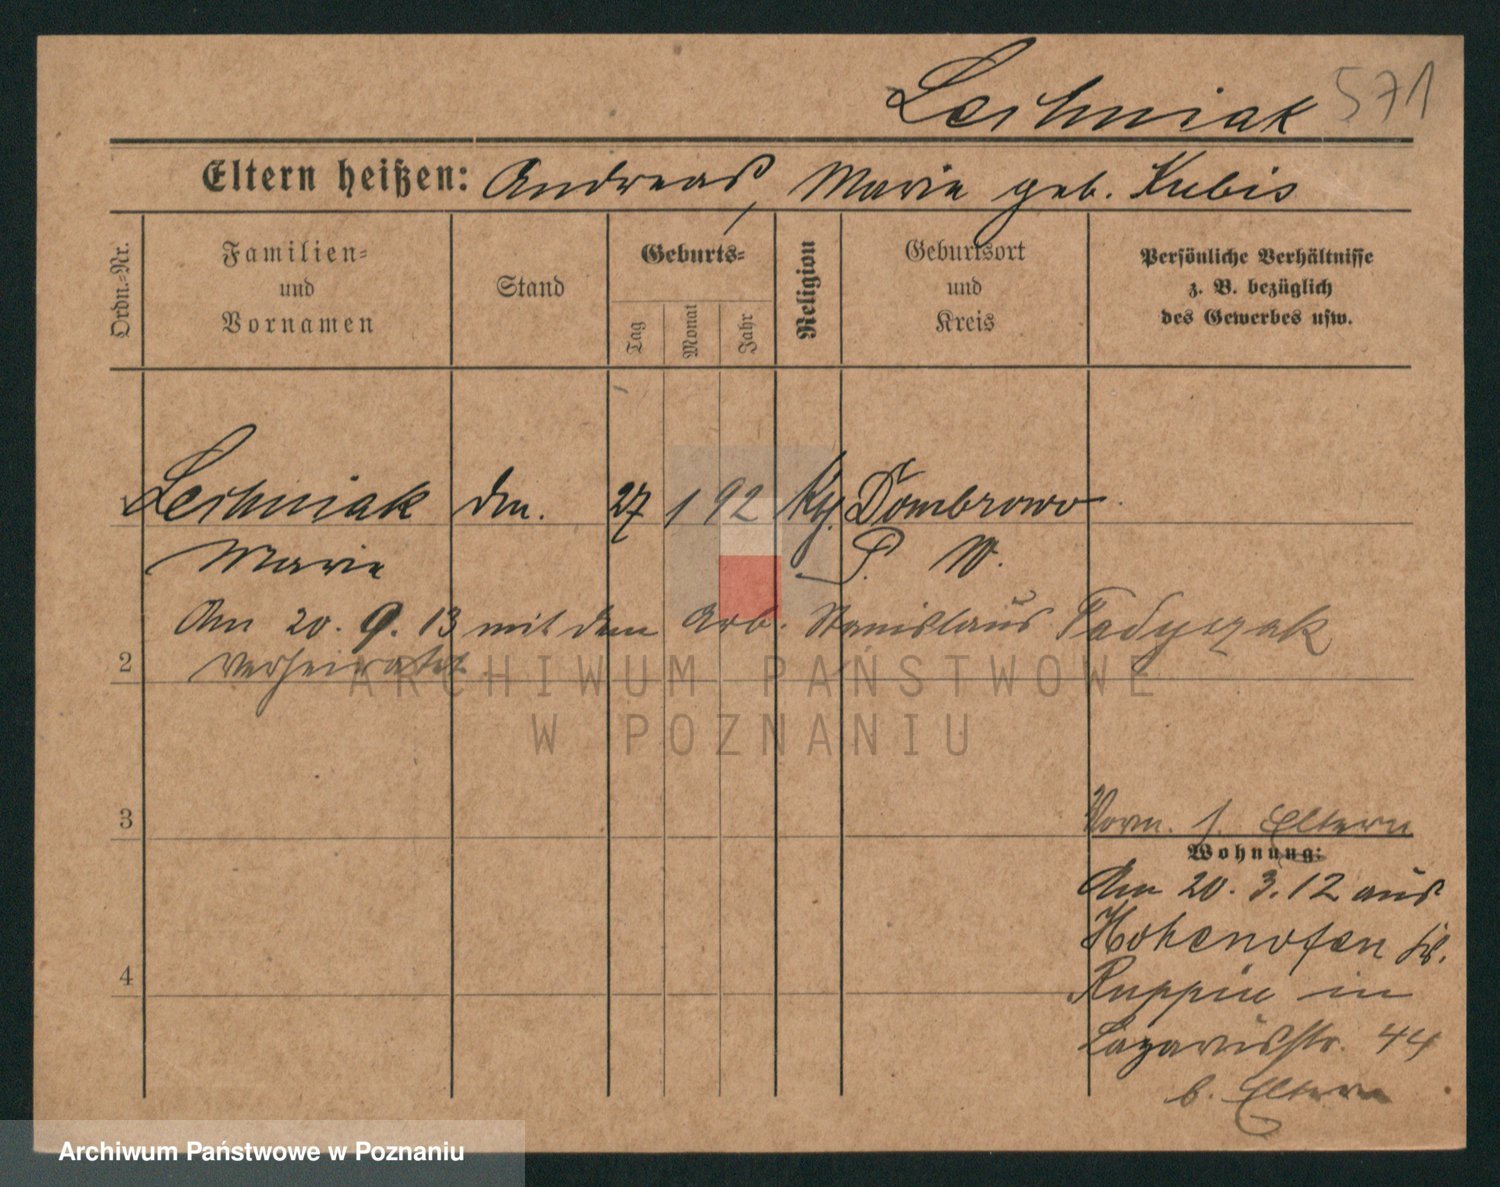 Leschniak 571
Eltern heißen: Andreas, Marie geb. Kubis
Ordn.-Nr.
Familien-
und
Vornamen
Stand
Geburts-
Tag
Monat
Jahr
Religion
Geburtsort
und
Kreis
Persönliche Verhältnisse
z. B. bezüglich
des Gewerbes usw.
1 Leschniak 27 1 92 Dombrowo
Marie P. W.
Am 20. 9. 13 mit dem Arb. Stanislaus Tadyszak
2 verheiratet
ARCHIWUM PAŃSTWOWE
W POZNANIU
3
Vorm. s. Eltern
Wohnung:
Am 20. 3. 12 aus
Hohenofen Kr.
4
Ruppin in
Lazarusstr. 44
b. Eltern
Archiwum Państwowe w Poznaniu